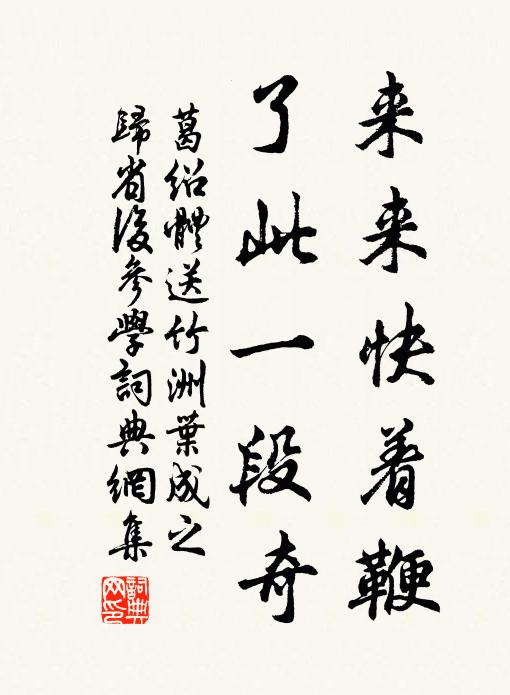 来来快着鞭
了此一段奇
葛绍體送竹洲葉成之
歸省後參學詞典網集
詞典网印